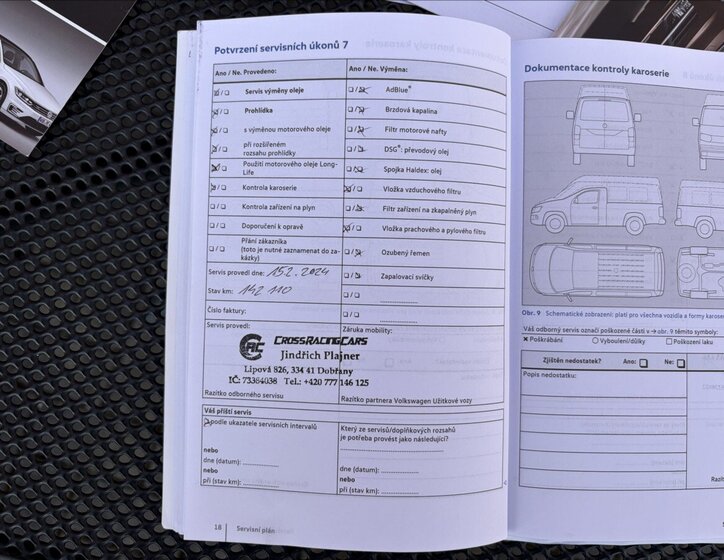 Potvrzení servisních úkonů 7
Ano / Ne. Provedeno:
Servis výměny oleje
Prohlídka
s výměnou motorového oleje
při rozšířeném
rozsahu prohlídky
Použití motorového oleje Long-
Life
Kontrola karoserie
Kontrola zařízení na plyn
Doporučení k opravě
Přání zákazníka
(toto je nutné zaznamenat do za-
kázky)
Servis provedl dne: 15.2.2024
Stav km: 142 110
Číslo faktury:
Servis provedl:
Ano / Ne. Výměna:
AdBlue®
Brzdová kapalina
Filtr motorové nafty
DSG®: převodový olej
Spojka Haldex: olej
Vložka vzduchového filtru
Filtr zařízení na zkapalněný plyn
Vložka prachového a pylového filtru
Ozubený řemen
Zapalovací svíčky
Záruka mobility:
CRC CROSSRACINGCARS
Jindřich Plajner
Lipová 826, 334 41 Dobřany
IČ: 73384038 Tel.: +420 777 146 125
Razítko odborného servisu
Razítko partnera Volkswagen Užitkové vozy
Váš příští servis
podle ukazatele servisních intervalů
nebo
dne (datum):
nebo
při (stav km):
Který ze servisů/doplňkových rozsahů
je potřeba provést jako následující?
dne (datum):
nebo
při (stav km):
18 Servisní plán
Dokumentace kontroly karoserie
Obr. 9 Schematické zobrazení: platí pro všechna vozidla a formy karoserie
Váš odborný servis označí poškozené části v → obr. 9 těmito symboly:
✕ Poškrábání ○ Vyboulení/důlky □ Poškození laku
Zjištěn nedostatek? Ano: Ne:
Popis nedostatku: